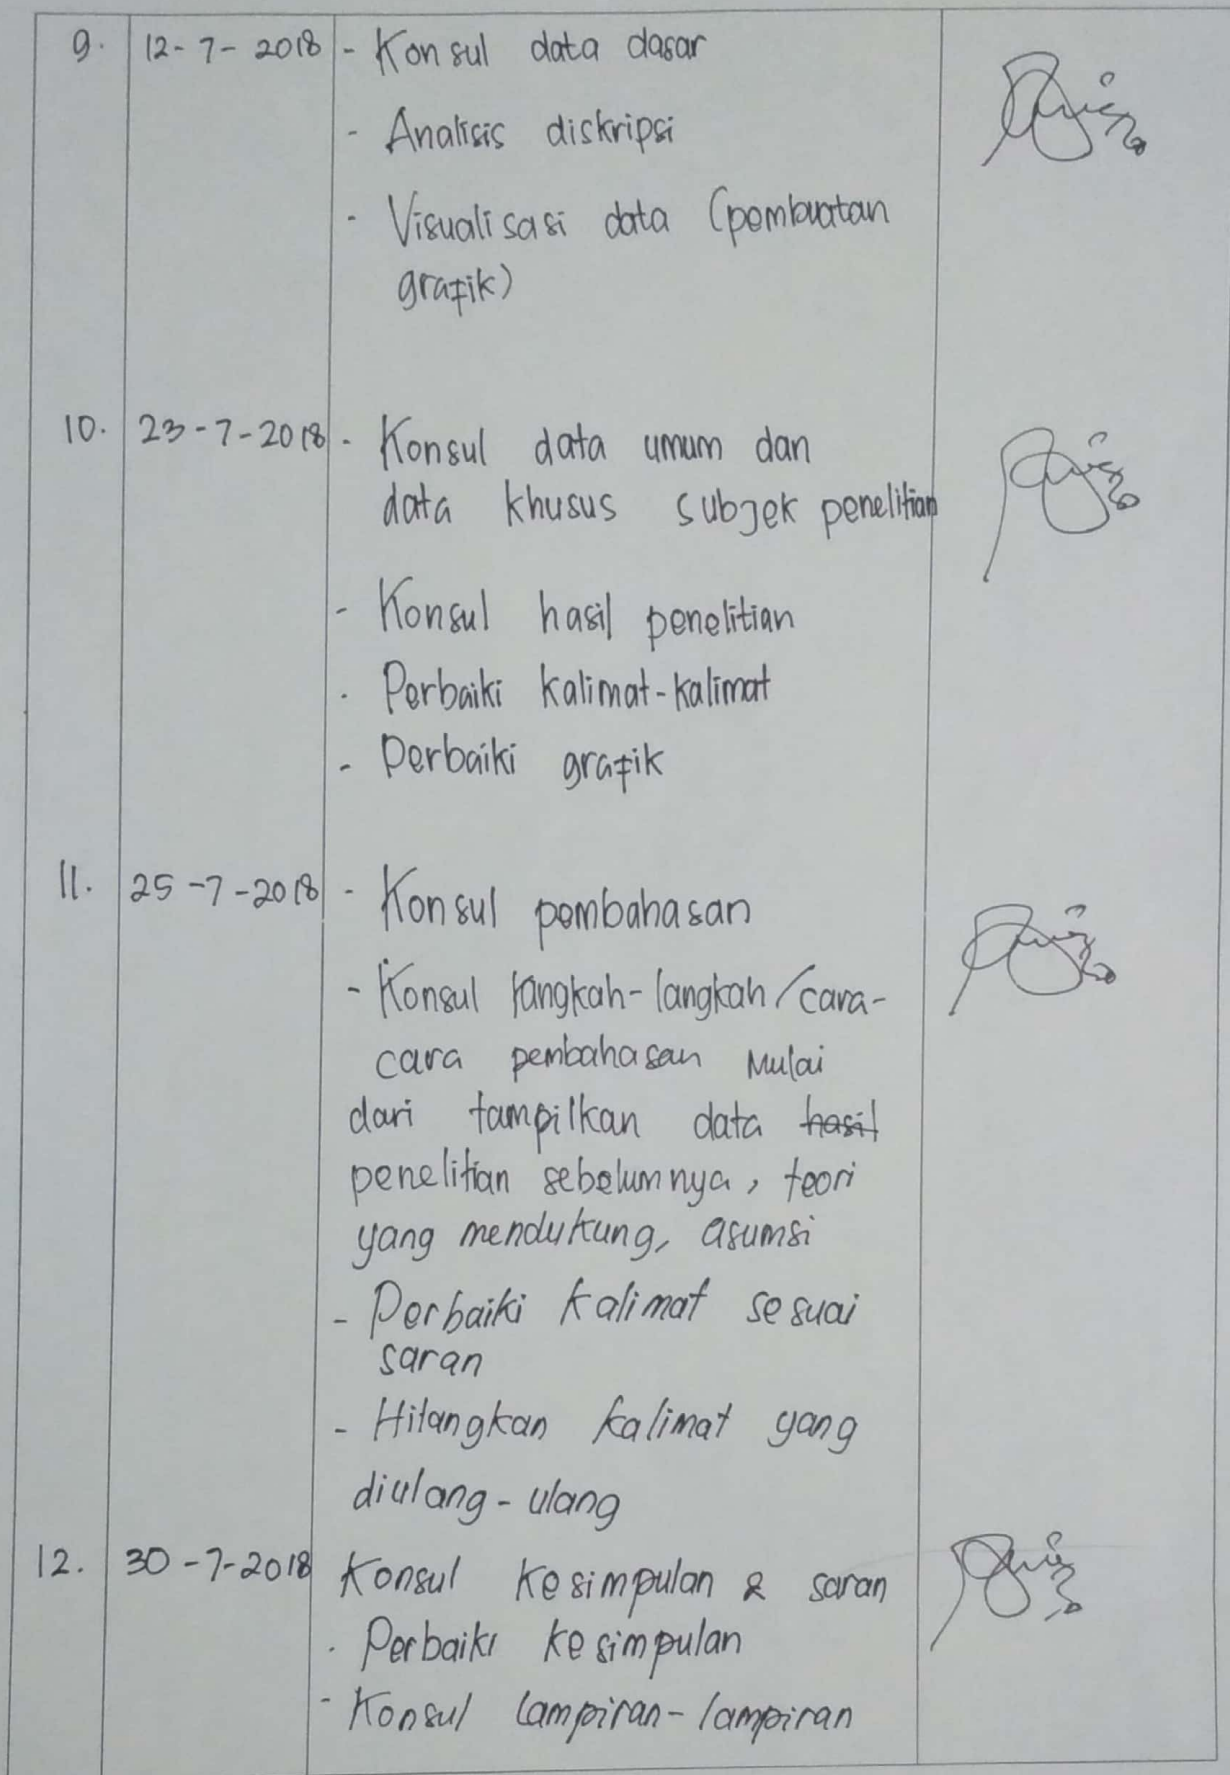 9. 12-7-2018 - Konsul data dasar
- Analisis diskripsi
- Visualisasi data (pembuatan
grafik)
10. 23-7-2018 - Konsul data umum dan
data khusus subjek penelitian
- Konsul hasil penelitian
- Perbaiki kalimat-kalimat
- Perbaiki grafik
11. 25-7-2018 - Konsul pembahasan
- Konsul langkah-langkah/cara-
cara pembahasan mulai
dari tampilkan data hasil
penelitian sebelumnya, teori
yang mendukung, asumsi
- Perbaiki kalimat sesuai
saran
- Hilangkan kalimat yang
diulang-ulang
12. 30-7-2018 Konsul kesimpulan & saran
- Perbaiki kesimpulan
- Konsul lampiran-lampiran